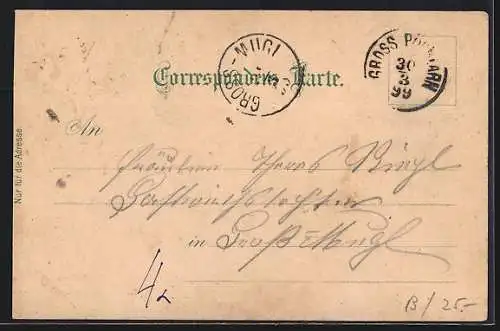 GROSS-MUGL
GROSS POPPMARN
30
3
99
Correspondenz-Karte.
Nur für die Adresse
An
Fräulein Theres Riegl
Gastwirthstochter
in Groß Mugl
4
B/25.-